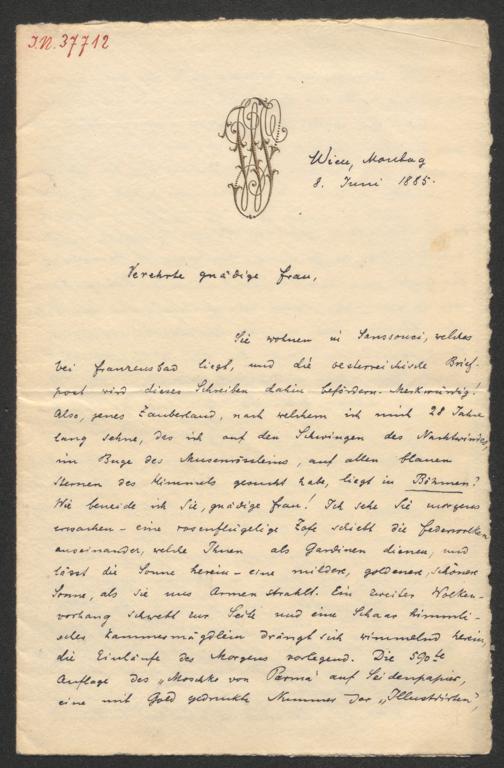 J.N. 37712
Wien, Montag
8. Juni 1885.
Verehrte gnädige Frau,
Sie wohnen in Sanssouci, welches
bei Franzensbad liegt, und die oesterreichische Brief-
post wird dieses Schreiben dahin befördern. Merkwürdig!
Also, jenes Zauberland, nach welchem ich mich 28 Jahre
lang sehne, das ich auf den Schwingen des Nachtwindes,
im Buge des Musenrössleins, auf allen blauen
Sternen des Himmels gesucht habe, liegt in Böhmen?
Wie beneide ich Sie, gnädige Frau! Ich sehe Sie morgens
erwachen – eine rosenflügelige Zofe schiebt die Federwolken
auseinander, welche Ihnen als Gardinen dienen, und
lässt die Sonne herein – eine mildere, goldenere, schönere
Sonne, als sie uns Armen strahlt. Ein zweiter Wolken-
vorhang schwebt zur Seite und eine Schaar himmli-
scher Kammermägdlein drängt sich wimmelnd herein,
die Einläufe des Morgens vorlegend. Die 590te
Auflage des „Moschko von Parma" auf Seidenpapier,
eine mit Gold gedruckte Nummer der „Illustrirten",